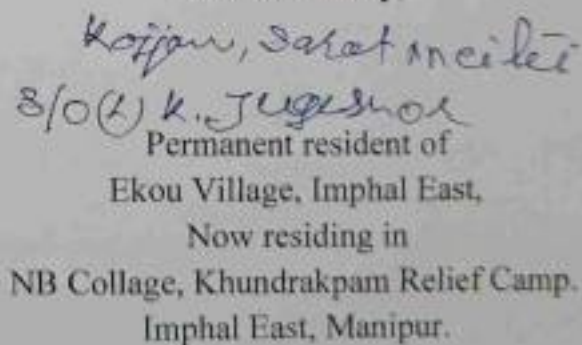 Kojjam, Sarat Meitei
S/O (L) K. Jugeshor
Permanent resident of
Ekou Village, Imphal East,
Now residing in
NB Collage, Khundrakpam Relief Camp.
Imphal East, Manipur.